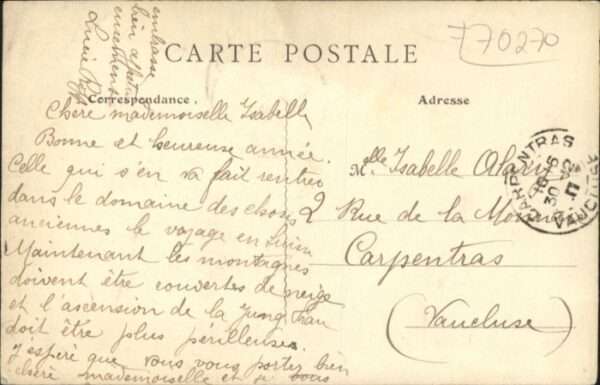 CARTE POSTALE
770270
Correspondance.
Adresse
Chère mademoiselle Isabelle
Bonne et heureuse année.
Celle qui s'en va fait rentrer
dans le domaine des choses
anciennes le voyage en Suisse
Maintenant les montagnes
doivent être couvertes de neige
et l'ascension de la Jung frau
doit être plus périlleuse.
J'espère que vous vous portez bien
chère mademoiselle et je vous
embrasse
bien affectu
eusement
Lucie
Mlle Isabelle
2 Rue de la
Carpentras
(Vaucluse)
CARPENTRAS
30
VAUCLUSE